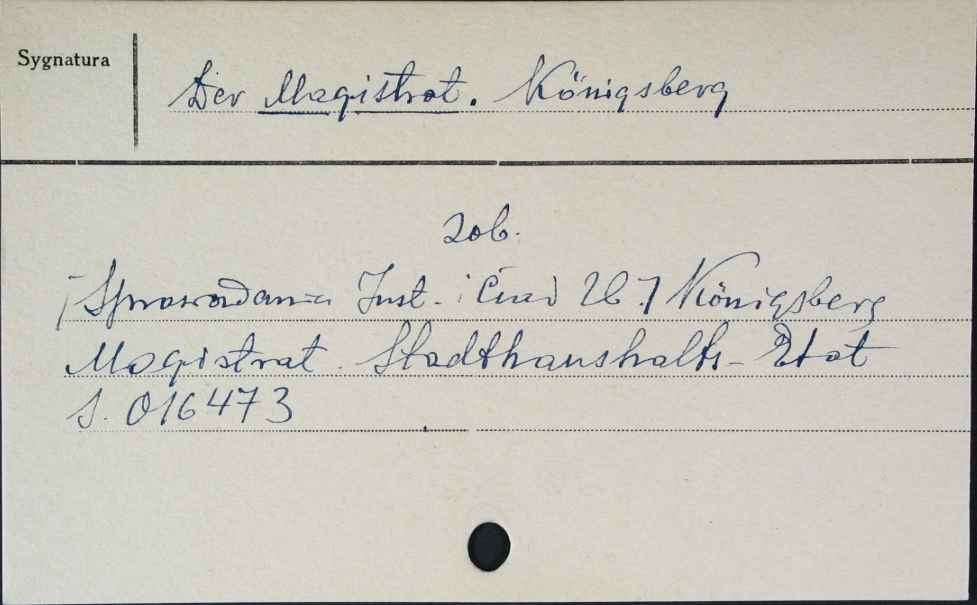 Sygnatura
Der Magistrat. Königsberg
zob.
[Sprawozdania Inst. i Czas] Königsberg
Magistrat. Stadthaushalts-Etat
S. 016473